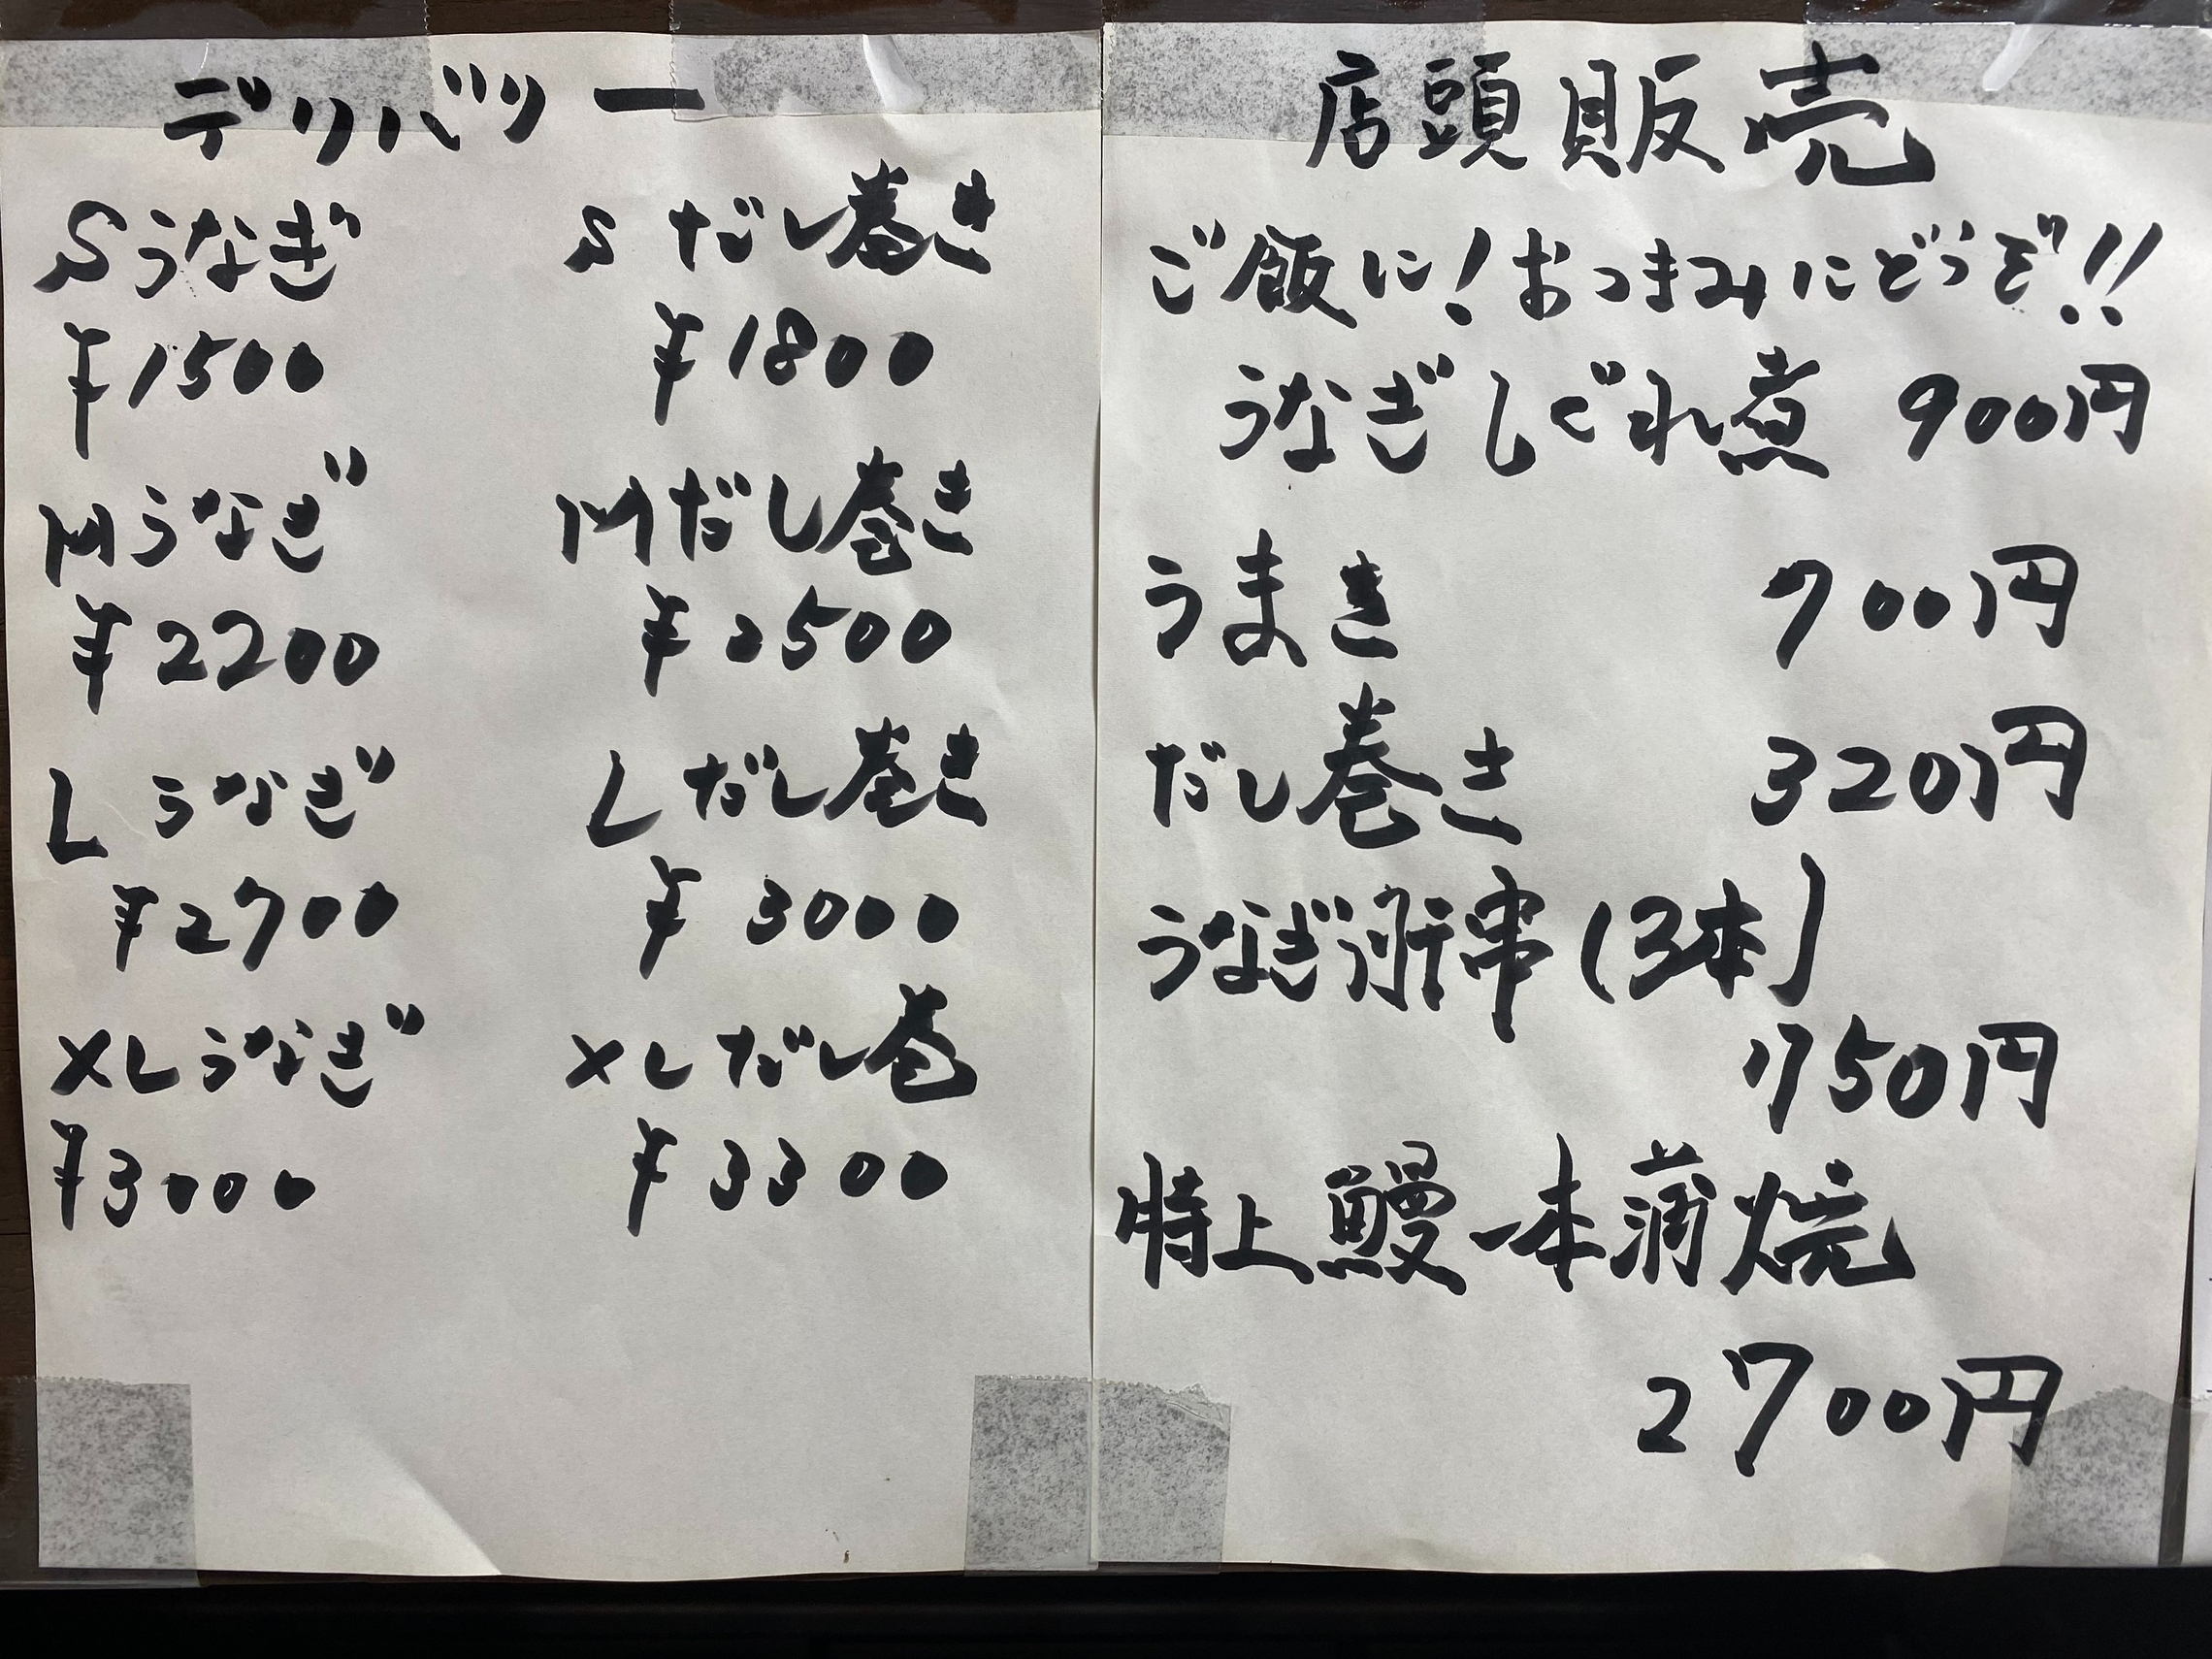 デリバリー
Sうなぎ
¥1500
Mうなぎ
¥2200
Lうなぎ
¥2700
XLうなぎ
¥3000
Sだし巻き
¥1800
Mだし巻き
¥2500
Lだし巻き
¥3000
XLだし巻
¥3300
店頭販売
ご飯に!おつまみにどうぞ!!
うなぎしぐれ煮 900円
うまき 700円
だし巻き 320円
うなぎ 串(3本)
750円
特上鰻一本蒲焼
2700円